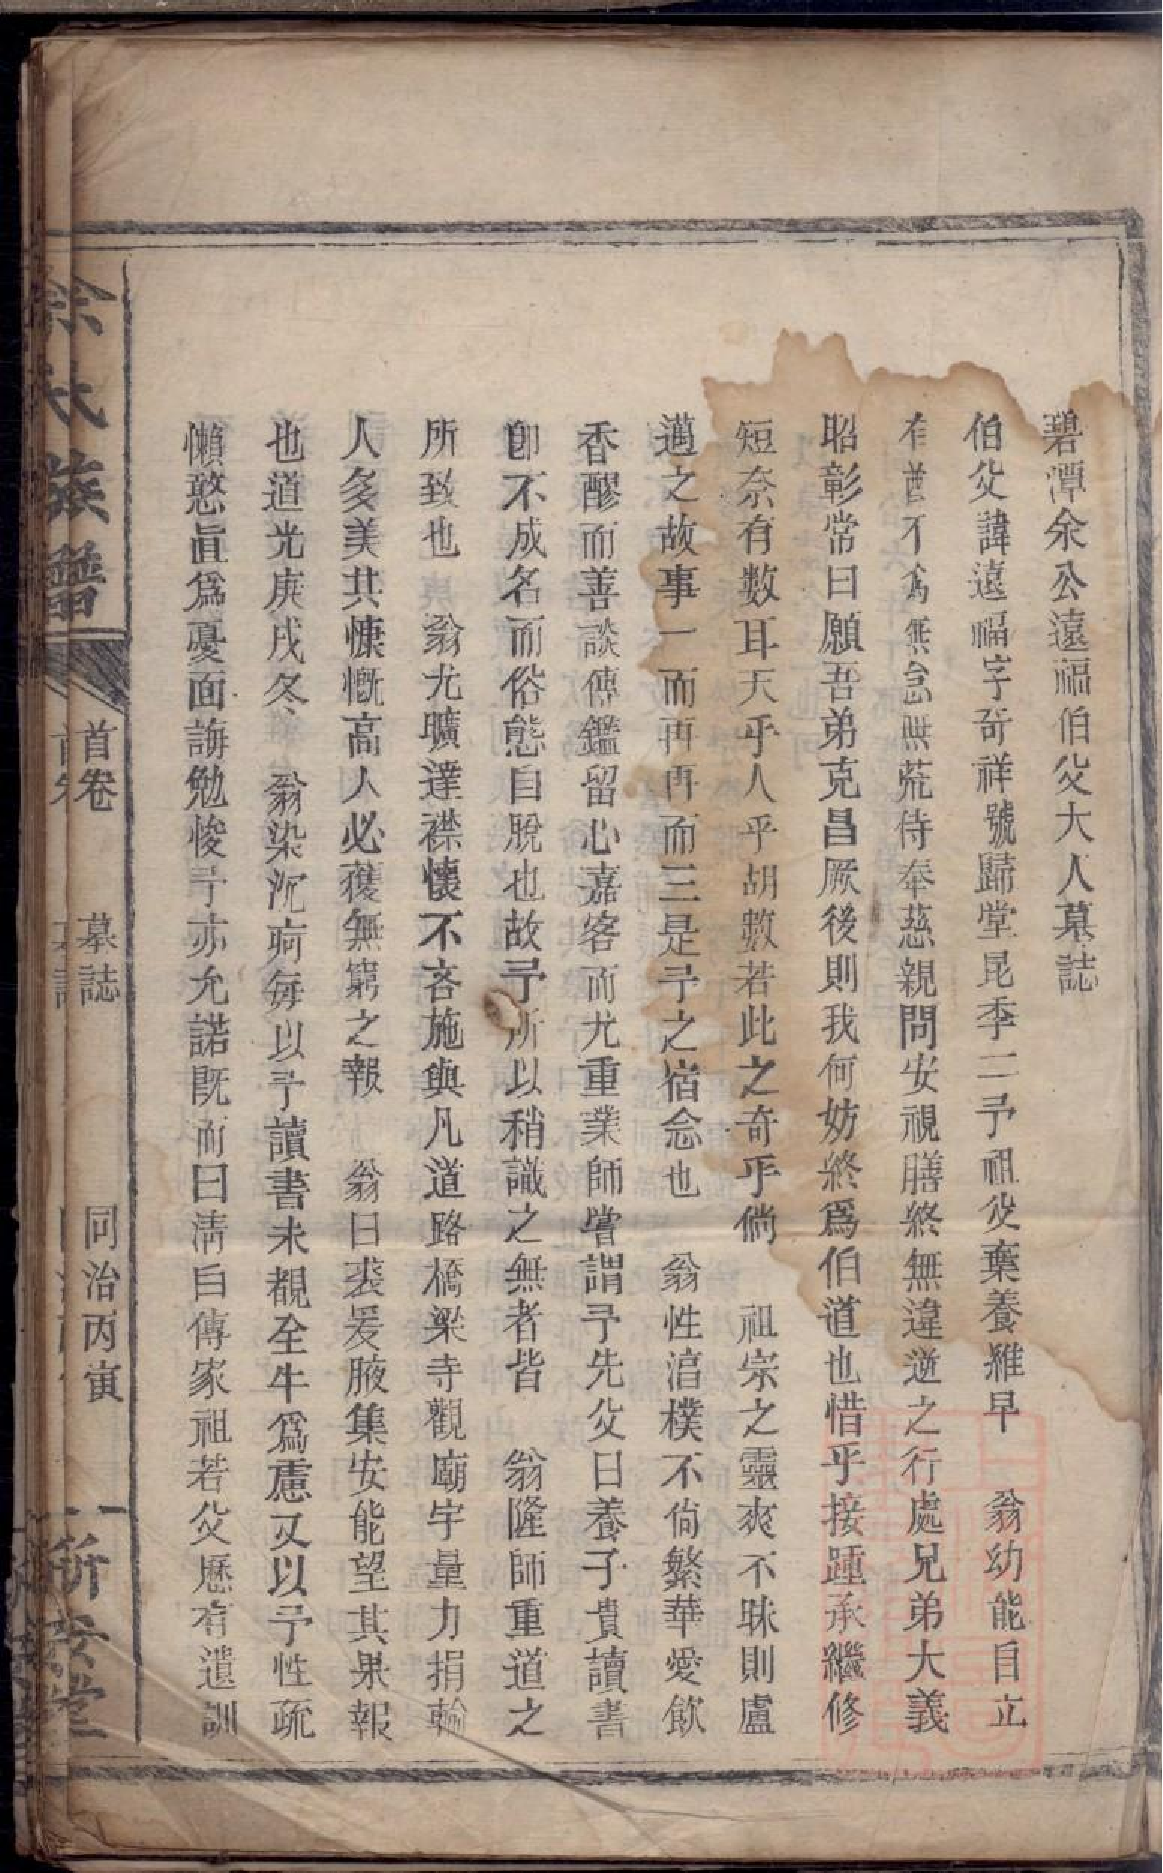 碧潭余公遠福伯父大人墓誌
伯父諱遠福字奇祥號歸堂昆季二予祖父棄養雖早　翁幼能自立
有爲無怠無荒侍奉慈親問安視膳終無違逆之行處兄弟大義
昭彰常曰願吾弟克昌厥後則我何妨終爲伯道也惜乎接踵承繼修
短奈有數耳天乎人乎胡數若此之奇乎倘　祖宗之靈爽不昧則盧
邁之故事一而再再而三是予之宿念也　翁性涫樸不尙繁華愛飲
香醪而善談傳鑑留心嘉客而尤重業師嘗謂予先父曰養子貴讀書
卽不成名而俗態自脫也故予所以稍識之無者皆　翁隆師重道之
所致也　翁尤曠達襟懷不吝施與凡道路橋梁寺觀廟宇量力捐輸
人多美其慷慨高人必獲無窮之報　翁曰裘爰腋集安能望其果報
也道光庚戌冬　翁染沉疴每以予讀書未覩全牛爲慮又以予性疏
懶憨眞爲憂面誨勉悛予亦允諾旣而曰淸白傳家祖若父歷有遺訓
余氏族譜
首卷　墓誌　同治丙寅
新安堂